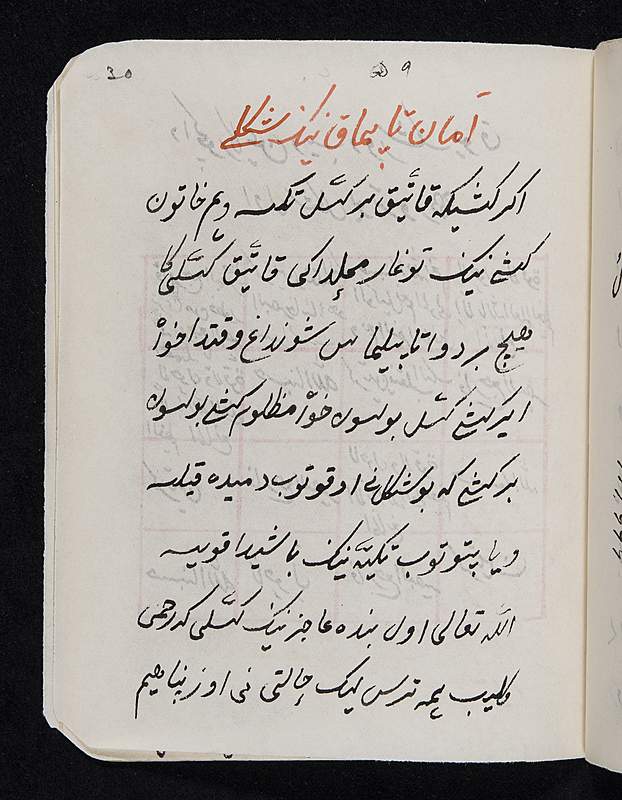 30 ۹
امان تابیماق نینک شکلی
اکر کشیکه قاتیق بر کسل تکسه وهم خاتون
کشی نینک توغار محلیداکی قاتیق کسلی کا
هیچ بر دوا تابیلماس شونداغ وقتدا خواه
ایر کشی کسل بولسون خواه مظلوم کشی بولسون
بر کشی که بو شکلنی اوقوتوب دمیده قیلسه
ویا پتوتوب تکیه نینک باشیدا قویسه
الله تعالی اول بنده عاجز نینک کسلی که رحمی
کلیب همه ترس لیک حالتی نی اوز پناهیم